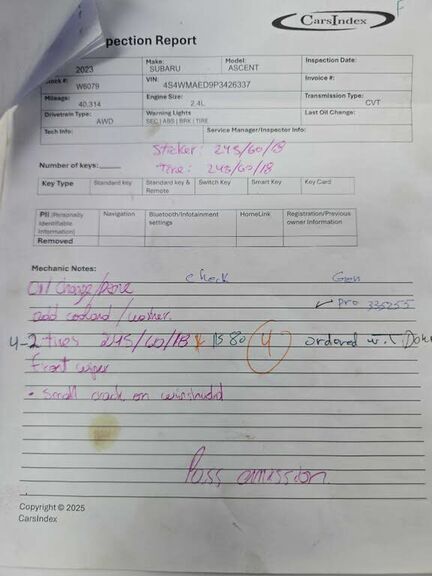 CarsIndex
pection Report
2023
Make: SUBARU
Model: ASCENT
Inspection Date:
ock #: W6079
VIN: 4S4WMAED9P3426337
Invoice #:
Mileage: 40,314
Engine Size: 2.4L
Transmission Type: CVT
Drivetrain Type: AWD
Warning Lights
SEC | ABS | BRK | TIRE
Last Oil Change:
Tech Info:
Service Manager/Inspector Info:
Sticker: 245/60/18
Number of keys:
Tire: 245/60/18
Key Type Standard key Standard key & Remote Switch Key Smart Key Key Card
PII (Personally Identifiable Information) Navigation Bluetooth/Infotainment settings HomeLink Registration/Previous owner Information
Removed
Mechanic Notes:
check
Oil change/
add cooland / washer.
pro 335255
4-2 tires 245/60/18 4 ordered
front wiper
• small crack on
Pass emission
Copyright © 2025
CarsIndex